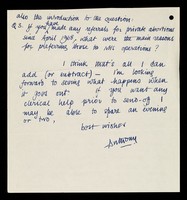 Also the introduction to the question:
Q 3. If you have made any referrals for private abortions
since April 1968, what were the main reasons
for preferring these to NHS operations?
I think that's all I can
add (or subtract) – I'm looking
forward to seeing what happens when
it goes out. If you want any
clerical help prior to send-off I
may be able to spare an evening
or two.
best wishes
Anthony